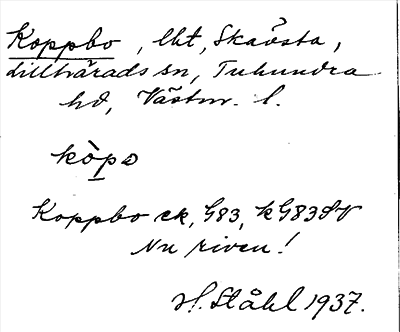 Koppbo, lht, Skävsta,
Lillhärads sn, Tuhundra
hd, Västm. l.
kòpɷ
Koppbo ek, G83, kG83SV
Nu riven!
H. Ståhl 1937.